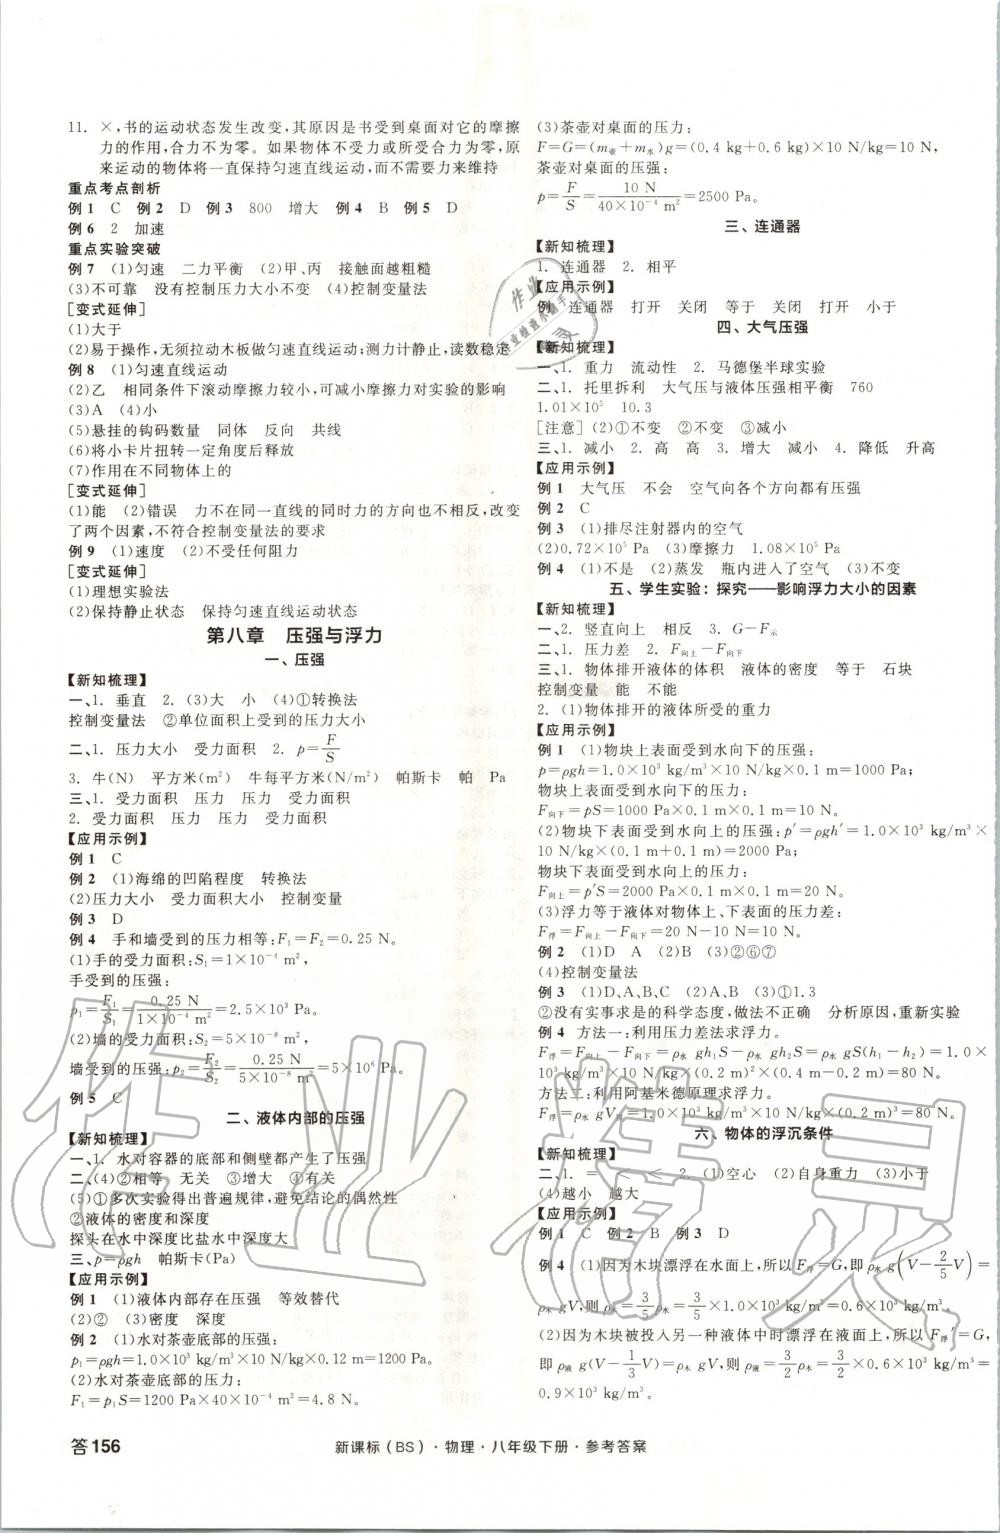 11. ×,书的运动状态发生改变,其原因是书受到桌面对它的摩擦
力的作用,合力不为零。如果物体不受力或所受合力为零,原
来运动的物体将一直保持匀速直线运动,而不需要力来维持
重点考点剖析
例 1 C 例 2 D 例 3 800 增大 例 4 B 例 5 D
例 6 2 加速
重点实验突破
例 7 (1)匀速 二力平衡 (2)甲、丙 接触面越粗糙
(3)不可靠 没有控制压力大小不变 (4)控制变量法
[变式延伸]
(1)大于
(2)易于操作,无须拉动木板做匀速直线运动;测力计静止,读数稳定
例 8 (1)匀速直线运动
(2)乙 相同条件下滚动摩擦力较小,可减小摩擦力对实验的影响
(3)A (4)小
(5)悬挂的钩码数量 同体 反向 共线
(6)将小卡片扭转一定角度后释放
(7)作用在不同物体上的
[变式延伸]
(1)能 (2)错误 力不在同一直线的同时力的方向也不相反,改变
了两个因素,不符合控制变量法的要求
例 9 (1)速度 (2)不受任何阻力
[变式延伸]
(1)理想实验法
(2)保持静止状态 保持匀速直线运动状态
第八章 压强与浮力
一、压强
【新知梳理】
一、1. 垂直 2. (3)大 小 (4)①转换法
控制变量法 ②单位面积上受到的压力大小
二、1. 压力大小 受力面积 2. p=F/S
3. 牛(N) 平方米(m²) 牛每平方米(N/m²) 帕斯卡 帕 Pa
三、1. 受力面积 压力 压力 受力面积
2. 受力面积 压力 压力 受力面积
【应用示例】
例 1 C
例 2 (1)海绵的凹陷程度 转换法
(2)压力大小 受力面积大小 控制变量
例 3 D
例 4 手和墙受到的压力相等:F₁=F₂=0.25 N。
(1)手的受力面积:S₁=1×10⁻⁴ m²,
手受到的压强:
p₁=F₁/S₁=0.25 N/(1×10⁻⁴ m²)=2.5×10³ Pa。
(2)墙的受力面积:S₂=5×10⁻⁸ m²,
墙受到的压强:p₂=F₂/S₂=0.25 N/(5×10⁻⁸ m²)=5×10⁶ Pa。
例 5 C
二、液体内部的压强
【新知梳理】
一、1. 水对容器的底部和侧壁都产生了压强
二、(4)②相等 无关 ③增大 ④有关
(5)①多次实验得出普遍规律,避免结论的偶然性
②液体的密度和深度
探头在水中深度比盐水中深度大
三、p=ρgh 帕斯卡(Pa)
【应用示例】
例 1 (1)液体内部存在压强 等效替代
(2)② (3)密度 深度
例 2 (1)水对茶壶底部的压强:
p₁=ρgh=1.0×10³ kg/m³×10 N/kg×0.12 m=1200 Pa。
(2)水对茶壶底部的压力:
F₁=p₁S=1200 Pa×40×10⁻⁴ m²=4.8 N。
(3)茶壶对桌面的压力:
F=G=(m壶+m水)g=(0.4 kg+0.6 kg)×10 N/kg=10 N,
茶壶对桌面的压强:
p=F/S=10 N/(40×10⁻⁴ m²)=2500 Pa。
三、连通器
【新知梳理】
1. 连通器 2. 相平
【应用示例】
例 连通器 打开 关闭 等于 关闭 打开 小于
四、大气压强
【新知梳理】
一、1. 重力 流动性 2. 马德堡半球实验
二、1. 托里拆利 大气压与液体压强相平衡 760
1.01×10⁵ 10.3
[注意] (2)①不变 ②不变 ③减小
三、1. 减小 2. 高 高 3. 增大 减小 4. 降低 升高
【应用示例】
例 1 大气压 不会 空气向各个方向都有压强
例 2 C
例 3 (1)排尽注射器内的空气
(2)0.72×10⁵ Pa (3)摩擦力 1.08×10⁵ Pa
例 4 (1)不是 (2)蒸发 瓶内进入了空气 (3)不变
五、学生实验：探究——影响浮力大小的因素
【新知梳理】
一、2. 竖直向上 相反 3. G−F示
二、1. 压力差 2. F向上−F向下
三、1. 物体排开液体的体积 液体的密度 等于 石块
控制变量 能 不能
2. (1)物体排开的液体所受的重力
【应用示例】
例 1 (1)物块上表面受到水向下的压强:
p=ρgh=1.0×10³ kg/m³×10 N/kg×0.1 m=1000 Pa;
物块上表面受到水向下的压力:
F向下=pS=1000 Pa×0.1 m×0.1 m=10 N。
(2)物块下表面受到水向上的压强:p′=ρgh′=1.0×10³ kg/m³×
10 N/kg×(0.1 m+0.1 m)=2000 Pa;
物块下表面受到水向上的压力:
F向上=p′S=2000 Pa×0.1 m×0.1 m=20 N。
(3)浮力等于液体对物体上、下表面的压力差:
F浮=F向上−F向下=20 N−10 N=10 N。
例 2 (1)D A (2)B (3)②⑥⑦
(4)控制变量法
例 3 (1)D、A、B、C (2)A、B (3)①1.3
②没有实事求是的科学态度,做法不正确 分析原因,重新实验
例 4 方法一:利用压力差法求浮力。
F浮=F向上−F向下=ρ水gh₁S−ρ水gh₂S=ρ水gS(h₁−h₂)=1.0×
10³ kg/m³×10 N/kg×(0.2 m)²×(0.4 m−0.2 m)=80 N。
方法二:利用阿基米德原理求浮力。
F浮=ρ水gV排=1.0×10³ kg/m³×10 N/kg×(0.2 m)³=80 N。
六、物体的浮沉条件
【新知梳理】
二、1. = < 2. (1)空心 (2)自身重力 (3)小于
(4)越小 越大
【应用示例】
例 1 C 例 2 B 例 3 D
例 4 (1)因为木块漂浮在水面上,所以F浮=G,即ρ水g(V−2/5V)=
ρ木gV,则ρ木=3/5ρ水=3/5×1.0×10³ kg/m³=0.6×10³ kg/m³。
(2)因为木块被投入另一种液体中时漂浮在液面上,所以F浮′=G,
即ρ液g(V−1/3V)=ρ木gV,则ρ液=3/2ρ木=3/2×0.6×10³ kg/m³=
0.9×10³ kg/m³。
答156
新课标(BS)·物理·八年级下册·参考答案
作业精灵